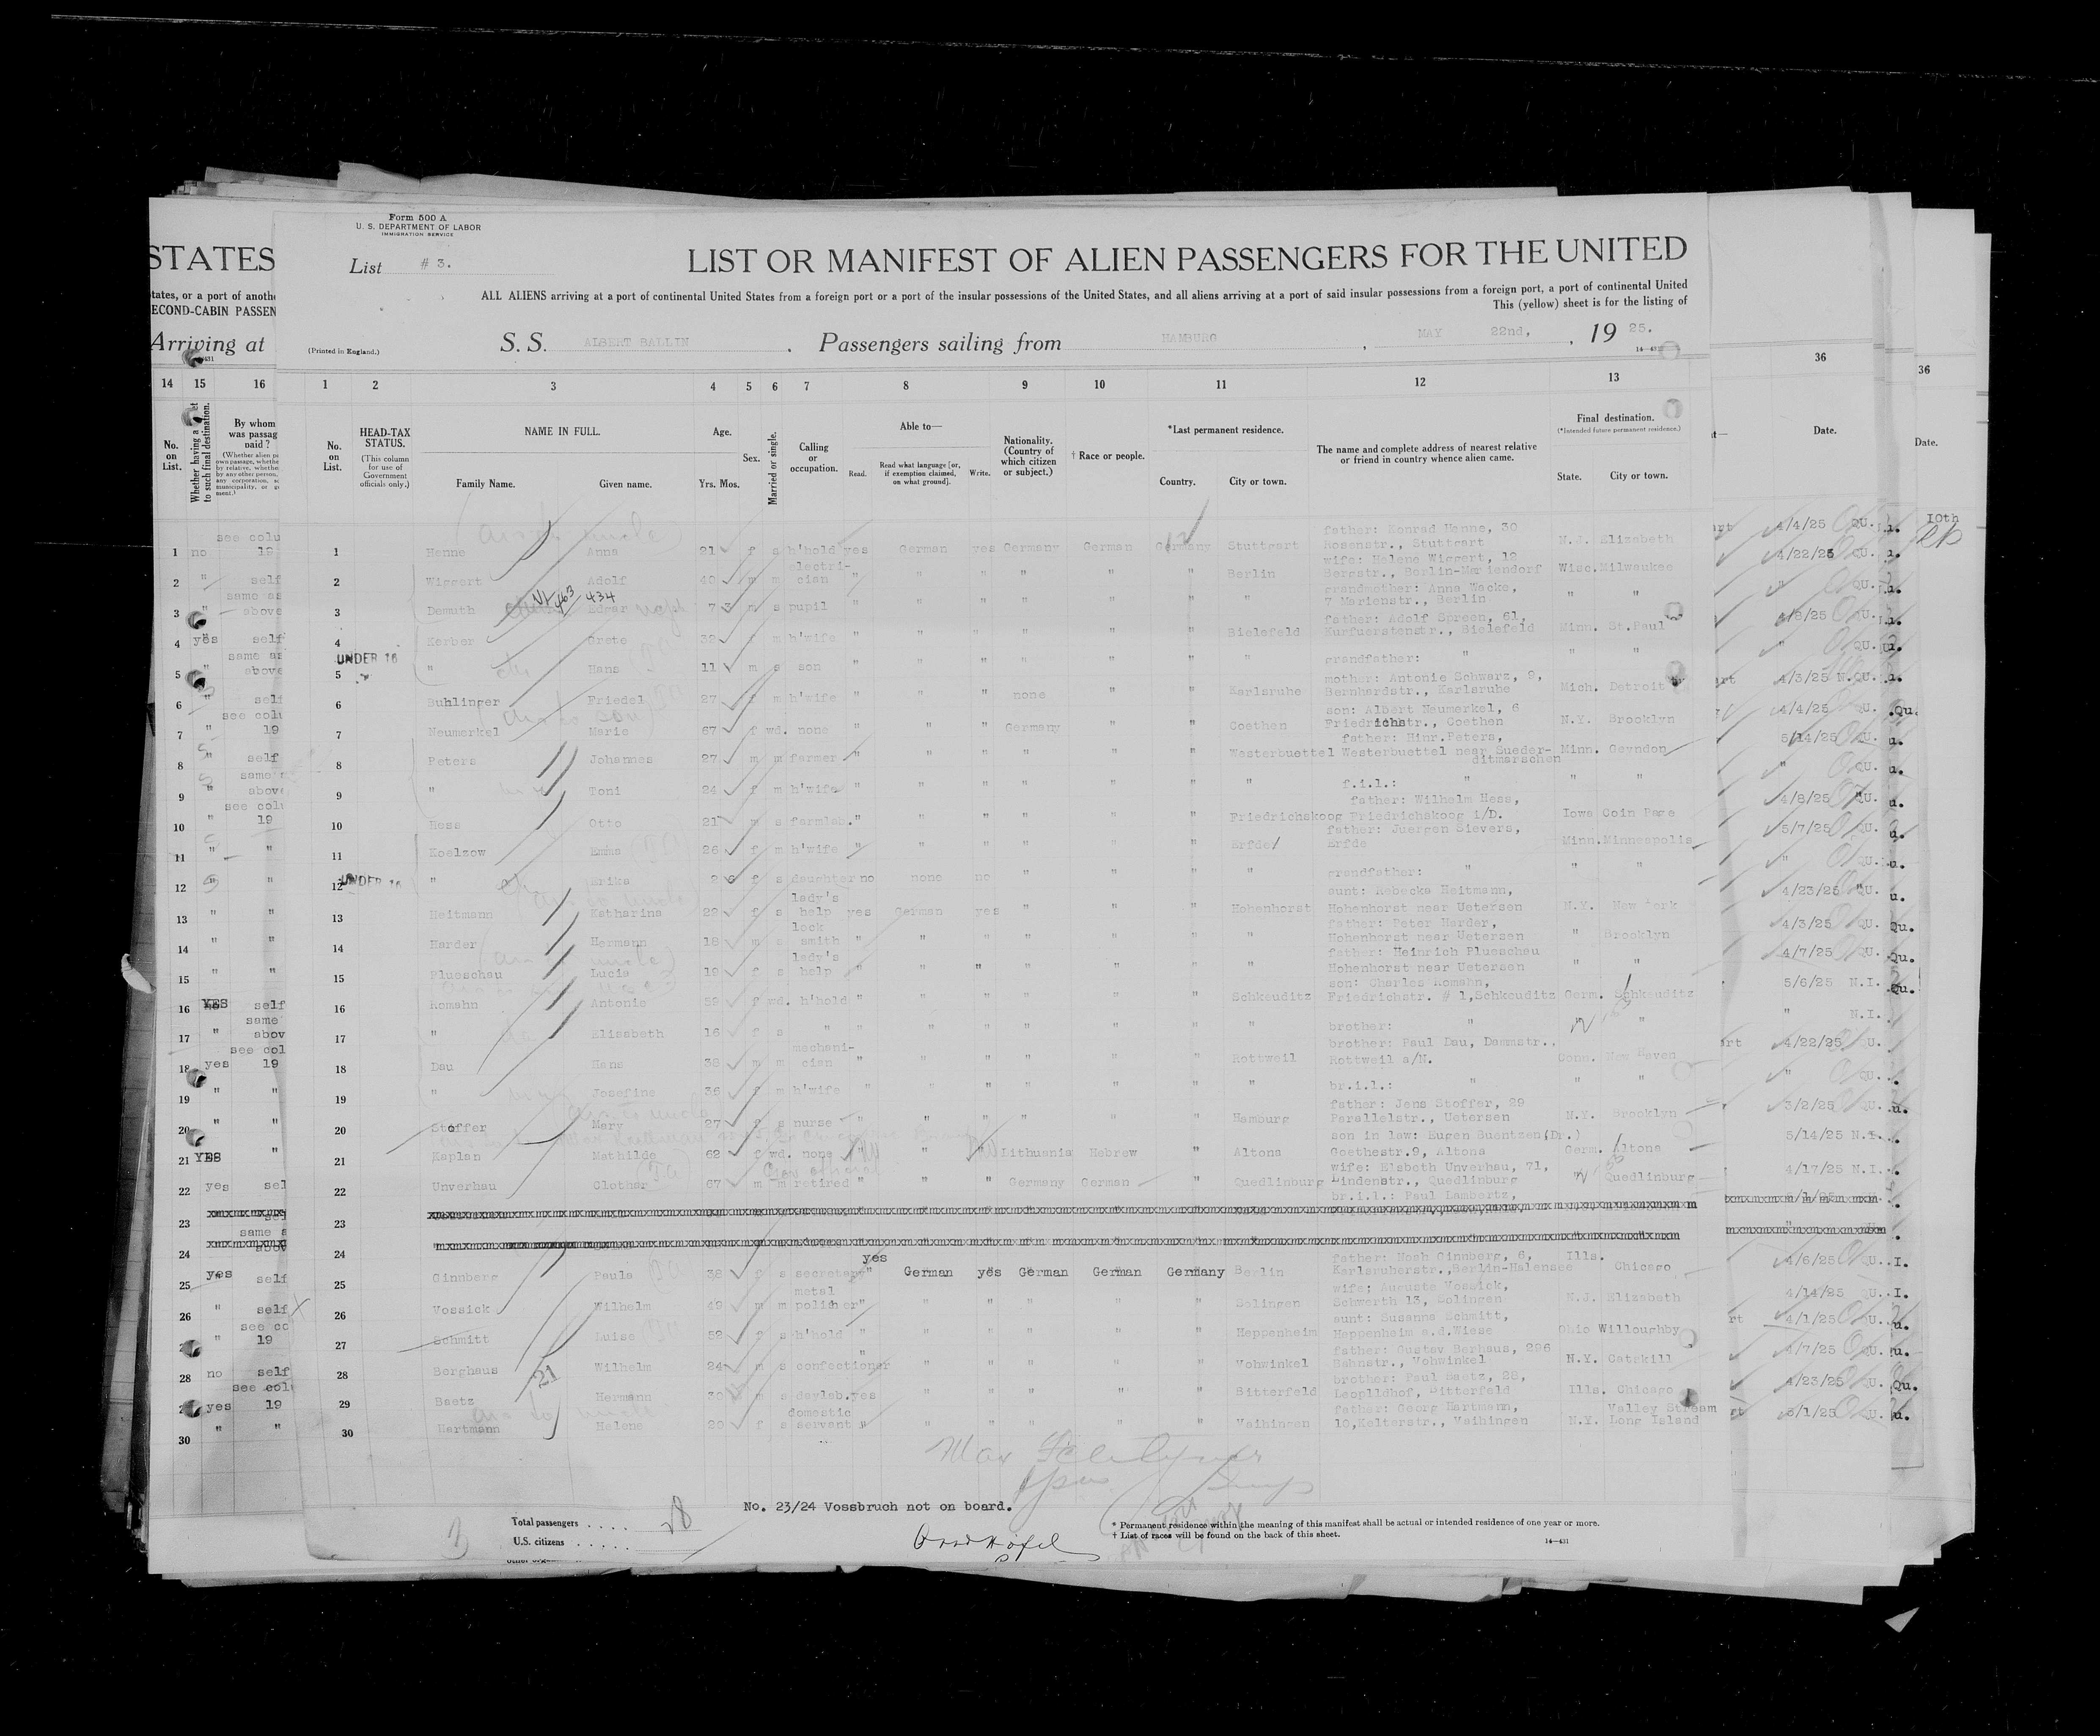 Form 500 A
U. S. DEPARTMENT OF LABOR
IMMIGRATION SERVICE
STATES
List # 3.
LIST OR MANIFEST OF ALIEN PASSENGERS FOR THE UNITED
ALL ALIENS arriving at a port of continental United States from a foreign port or a port of the insular possessions of the United States, and all aliens arriving at a port of said insular possessions from a foreign port, a port of continental United
This (yellow) sheet is for the listing of
tates, or a port of anothe
ECOND-CABIN PASSEN
Arriving at
(Printed in England.)
S. S. ALBERT BALLIN . Passengers sailing from HAMBURG , MAY 22nd, , 19 25.
14 15 16 1 2 3 4 5 6 7 8 9 10 11 12 13 36 36
No. on List.
Whether having a
to such final destination.
By whom was passag paid ?
No. on List.
HEAD-TAX STATUS.
(This column for use of Government officials only.)
NAME IN FULL.
Family Name. Given name.
Age.
Yrs. Mos.
Sex.
Married or single.
Calling or occupation.
Able to—
Read. Read what language [or, if exemption claimed, on what ground]. Write.
Nationality. (Country of which citizen or subject.)
† Race or people.
*Last permanent residence.
Country. City or town.
The name and complete address of nearest relative or friend in country whence alien came.
Final destination.
(*Intended future permanent residence.)
State. City or town.
Date. Date.
see colu father: Konrad Henne, 30 4/4/25 QU. 10th
1 no 19 1 Henne Anna 21 f s h'hold yes German yes Germany German Germany Stuttgart Rosenstr., Stuttgart N.J. Elizabeth
electri- wife: Helene Wiggert, 12 4/22/25 QU.
2 " self 2 Wiggert Adolf 42 m m cian " " " " " " Berlin Bergstr., Berlin-Mariendorf Wisc. Milwaukee
same as grandmother: Anna Wacke, " QU.
3 " above 3 Demuth 434 Edgar 7 m s pupil " " " " " " " 7 Marienstr., Berlin " "
father: Adolf Spreen, 61, 4/8/25 QU.
4 yes self 4 Korber Grete 32 f m h'wife " " " " " " Bielefeld Kurfuerstenstr., Bielefeld Minn. St.Paul
same as UNDER 16 " QU.
5 " above 5 " Hans 11 m s son " " " " " " " grandfather: " " "
mother: Antonie Schwarz, 9, 4/3/25 N.QU.
6 " self 6 Buhlinger Friedel 27 f m h'wife " " " none " " Karlsruhe Bernhardstr., Karlsruhe Mich. Detroit
see colu son: Albert Neumerkel, 6 4/4/25 QU.
7 " 19 7 Neumerkel Marie 67 f wd. none " " " Germany " " Coethen Friedrichstr., Coethen N.Y. Brooklyn
father: Hinr.Peters, 5/14/25 QU.
8 " self 8 Peters Johannes 27 m m farmer " " " " " " Westerbuettel Westerbuettel near Sueder- Minn. Geyndon
ditmarschen
same above " QU.
9 " 9 " Toni 24 f m h'wife " " " " " " " f.i.l.: " " "
see colu father: Wilhelm Hess, 4/8/25 QU.
10 " 19 10 Hess Otto 21 m s farmlab. " " " " " " Friedrichskoog Friedrichskoog i/D. Iowa Coin Page
father: Juergen Sievers, 5/7/25 QU.
11 " " 11 Koelzow Emma 26 f m h'wife " " " " " " Erfde Erfde Minn. Minneapolis
UNDER 16 " QU.
12 " " 12 " Erika 2 6 f s daughter no none no " " " " grandfather: " " "
lady's aunt: Rebecka Heitmann, 4/23/25 QU.
13 " " 13 Heitmann Katharina 29 f s help yes German yes " " " Hohenhorst Hohenhorst near Uetersen N.Y. New York
lock father: Peter Harder, 4/3/25 QU.
14 " " 14 Harder Hermann 18 m s smith " " " " " " " Hohenhorst near Uetersen " Brooklyn
lady's father: Heinrich Plueschau 4/7/25 QU.
15 " " 15 Plueschau Lucie 19 f s help " " " " " " " Hohenhorst near Uetersen " "
son: Charles Romahn, 5/6/25 N.I.
16 YES self 16 Romahn Antonie 59 f wd. h'hold " " " " " " Schkeuditz Friedrichstr. # 1,Schkeuditz Germ. Schkeuditz
same above " N.I.
17 " 17 " Elisabeth 16 f s " " " " " " " " brother: " " "
see col mechani- brother: Paul Dau, Dammstr., 4/22/25 QU.
18 yes 19 18 Dau Hans 38 m m cian " " " " " " Rottweil Rottweil a/N. Conn. New Haven
19 " " 19 " Josefine 36 f m h'wife " " " " " " " br.i.l.: " " " " QU.
father: Jens Stoffer, 29 3/2/25 QU.
20 " " 20 Stoffer Mary 27 f s nurse " " " " " " Hamburg Parallelstr., Uetersen N.Y. Brooklyn
son in law: Eugen Buentzen(Dr.) 5/14/25 N.I.
21 YES " 21 Kaplan Mathilde 62 f wd. none " " " Lithuania Hebrew " Altona Goethestr.9, Altona Germ. Altona
wife: Elsbeth Unverhau, 71, 4/17/25 N.I.
22 yes self 22 Unverhau Clothar 67 m m retired " " " Germany German " Quedlinburg Lindenstr., Quedlinburg " Quedlinburg
br.i.l.: Paul Lambertz,
23 23
24 24
yes father: Noah Ginnberg, 6, Ills. 4/6/25 QU.
25 yes self 25 Ginnberg Paula 38 f s secretary " German yes German German Germany Berlin Karlsruherstr.,Berlin-Halensee Chicago
metal wife; Auguste Vossick, 4/14/25 QU.
26 " self 26 Vossick Wilhelm 49 m m polisher " " " " " " Solingen Schwerth 13, Solingen N.J. Elizabeth
see co aunt: Susanna Schmitt, 4/1/25 QU.
" 19 27 Schmitt Luise 52 f s h'hold " " " " " " Heppenheim Heppenheim a.d.Wiese Ohio Willoughby
father: Gustav Berhaus, 296 4/7/25 QU.
28 no self 28 Berghaus Wilhelm 24 m s confectioner " " " " " " Vohwinkel Bahnstr., Vohwinkel N.Y. Catskill
see colu brother: Paul Baetz, 28, 4/23/25 QU.
yes 19 29 Baetz Hermann 30 m s daylab. yes " " " " " Bitterfeld Leoplldhof, Bitterfeld Ills. Chicago
domestic father: Georg Hartmann, Valley Stream 5/1/25 QU.
30 " " 30 Hartmann Helene 20 f s servant " " " " " " Vaihingen 10,Kelterstr., Vaihingen N.Y. Long Island
No. 23/24 Vossbruch not on board.
Total passengers . . . . 28
U.S. citizens . . . . .
* Permanent residence within the meaning of this manifest shall be actual or intended residence of one year or more.
† List of races will be found on the back of this sheet.
14—431
3